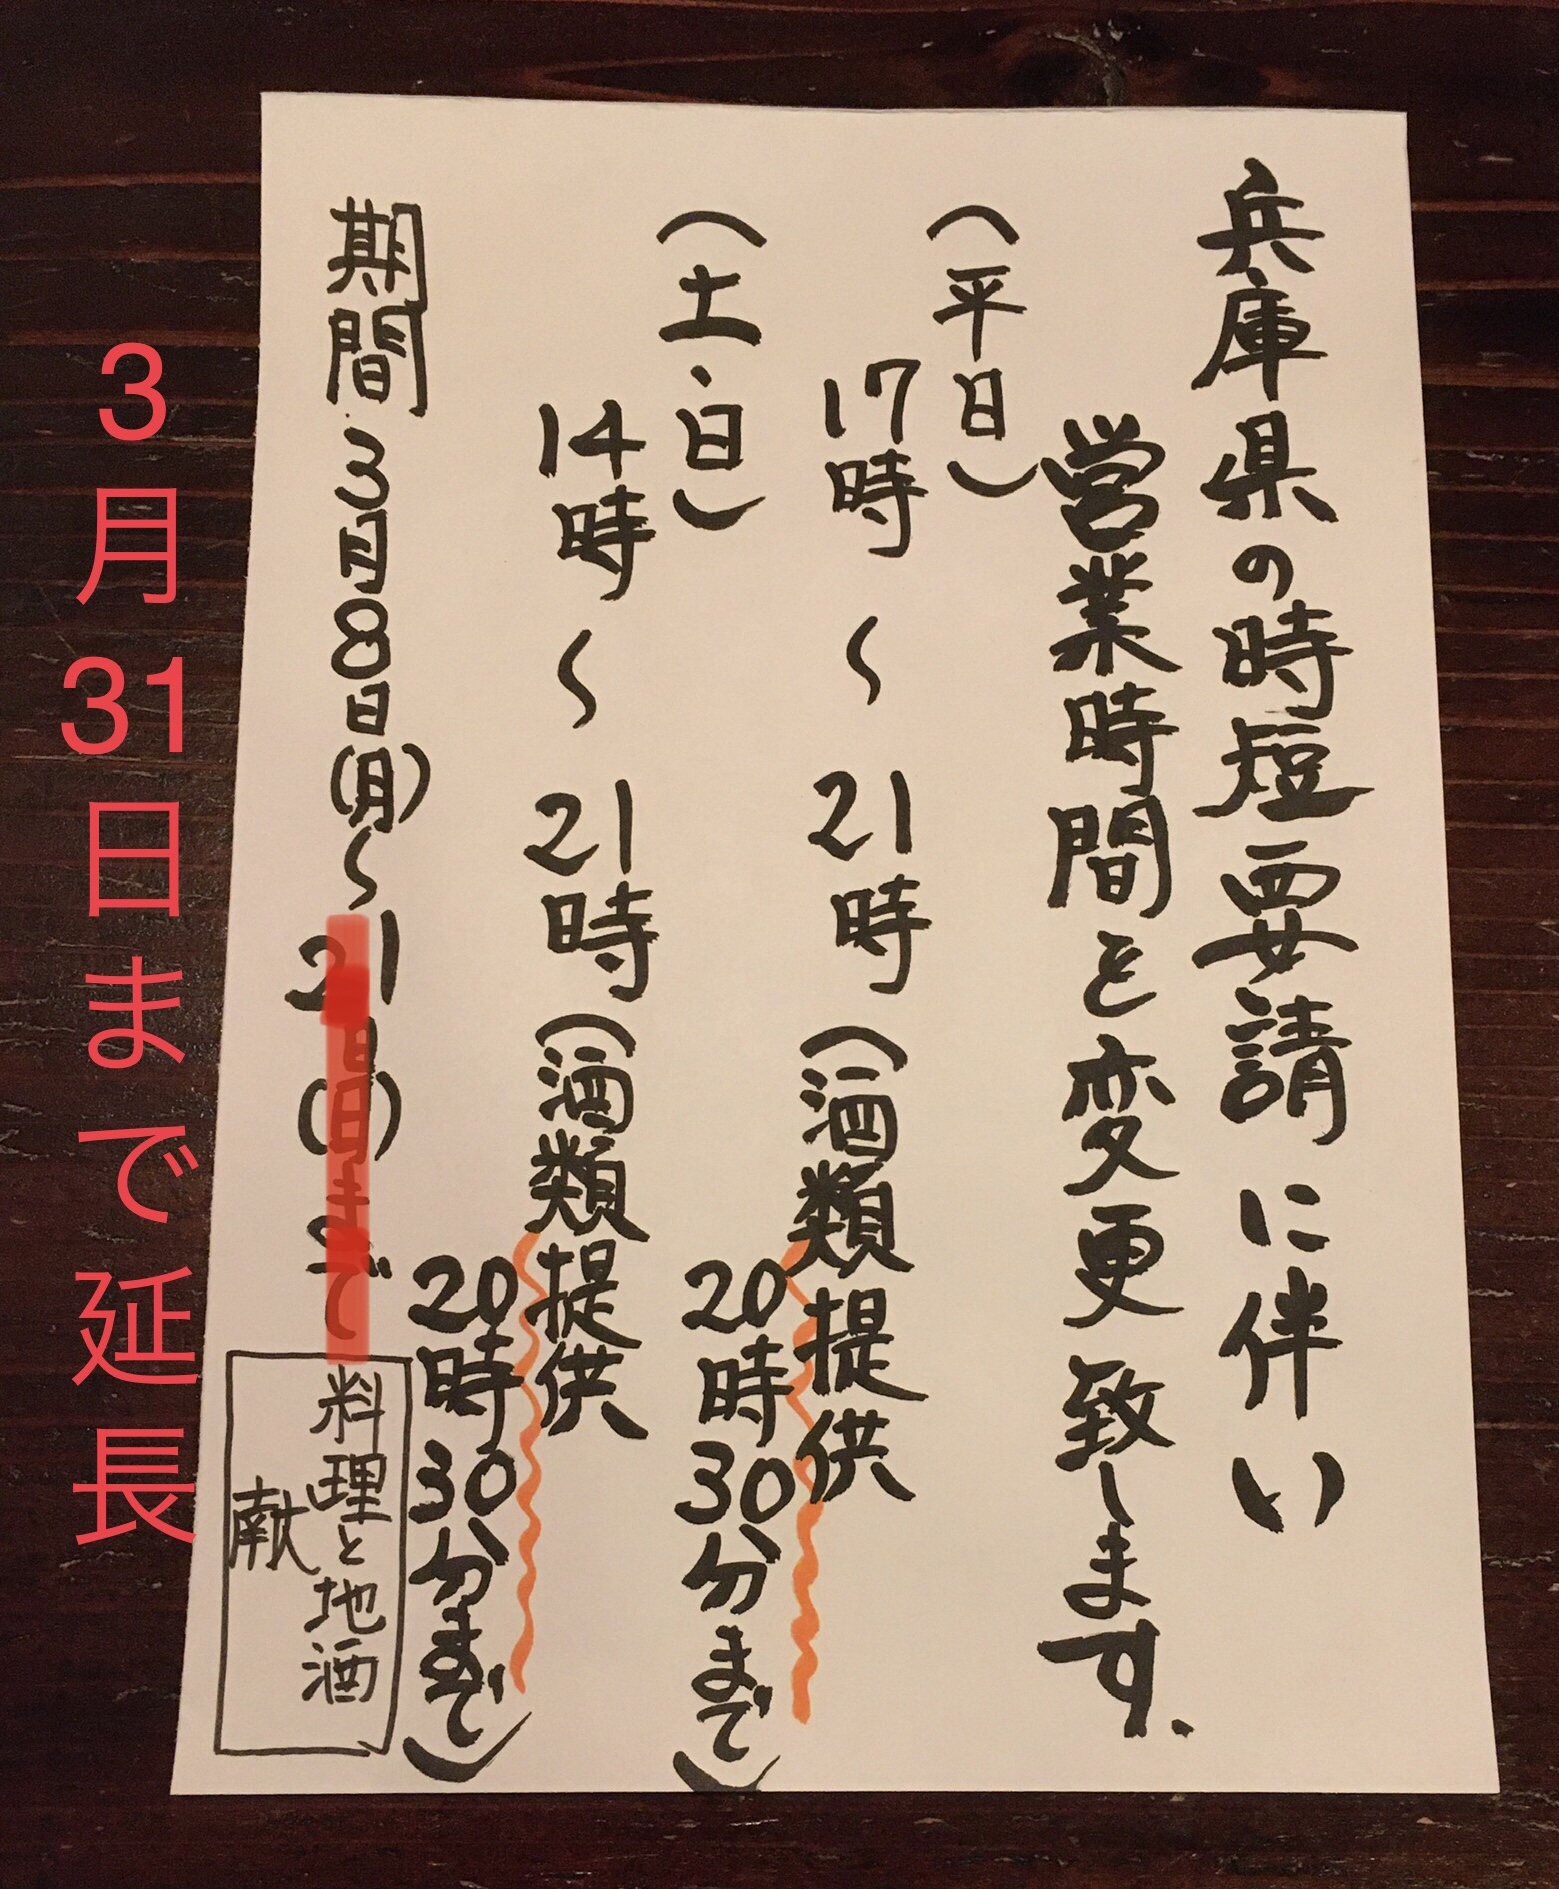 兵庫県の時短要請に伴い
営業時間を変更致します.
(平日)
17時〜21時(酒類提供
20時30分まで)
(土・日)
14時〜21時(酒類提供
20時30分まで)
期間 3月8日(月)〜21日(日)まで
料理と地酒
献
3月31日まで延長